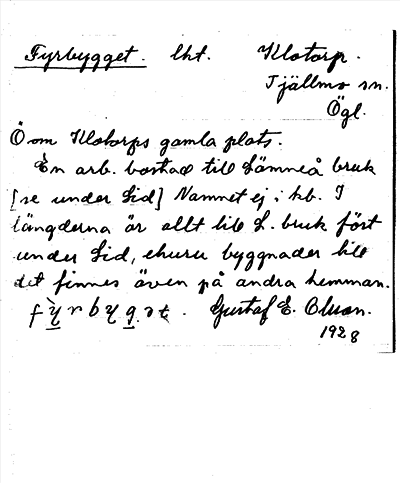 Fyrbygget. lht. Klotorp.
Tjällmo sn.
Ögl.
Ö om Klotorps gamla plats.
En arb. bostad till Sämneå bruk
[se under Lid] Namnet ej i hb. I
längderna är allt till L. bruk fört
under Lid, ehuru byggnader till
det finnes även på andra hemman.
fỳrbygət. Gustaf E. Olson.
1928